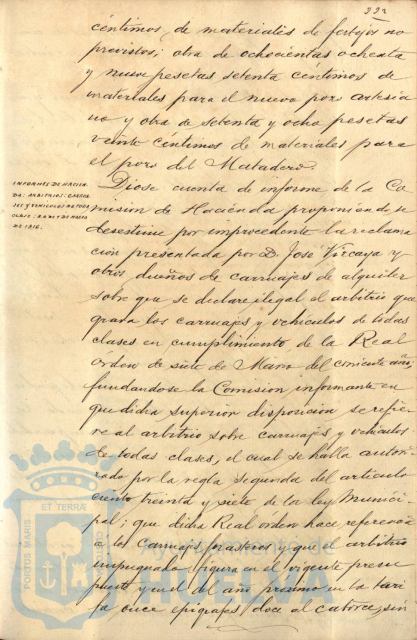 222
céntimos de materiales de festejos no
previstos; otra de ochocientas ochenta
y nueve pesetas setenta céntimos de
materiales para el nuevo pozo artesia
no y otra de setenta y ocho pesetas
veinte céntimos de materiales para
el pozo del Matadero.
INFORMES DE HACIEN
DA: ARBITRIOS: CARRUA
JES Y VEHICULOS DE TODAS
CLASES: R.O. DE 7 DE MARZO
DE 1916.
Diose cuenta de informe de la Co
misión de Hacienda proponiendo se
desestime por improcedente la reclama
ción presentada por D. José Vizcaya y
otros dueños de carruajes de alquiler
sobre que se declare ilegal el arbitrio que
grava los carruajes y vehículos de todas
clases en cumplimiento de la Real
órden de siete de Marzo del corriente año,
fundandose la Comisión informante en
que dicha superior disposición se refie
re al arbitrio sobre carruajes y vehículos
de todas clases, el cual se halla autori
zado por la regla segunda del artículo
ciento treinta y siete de la ley Munici
pal; que dicha Real orden hace referencia
a los carruajes rasteros y que el arbitrio
impugnado figura en el vigente presu
puesto y en el de año próximo en la tari
fa once epígrafes doce al catorce, sin
PORTUS MARIS ET TERRAE CUSTODIA
Ayuntamiento de
HUELVA